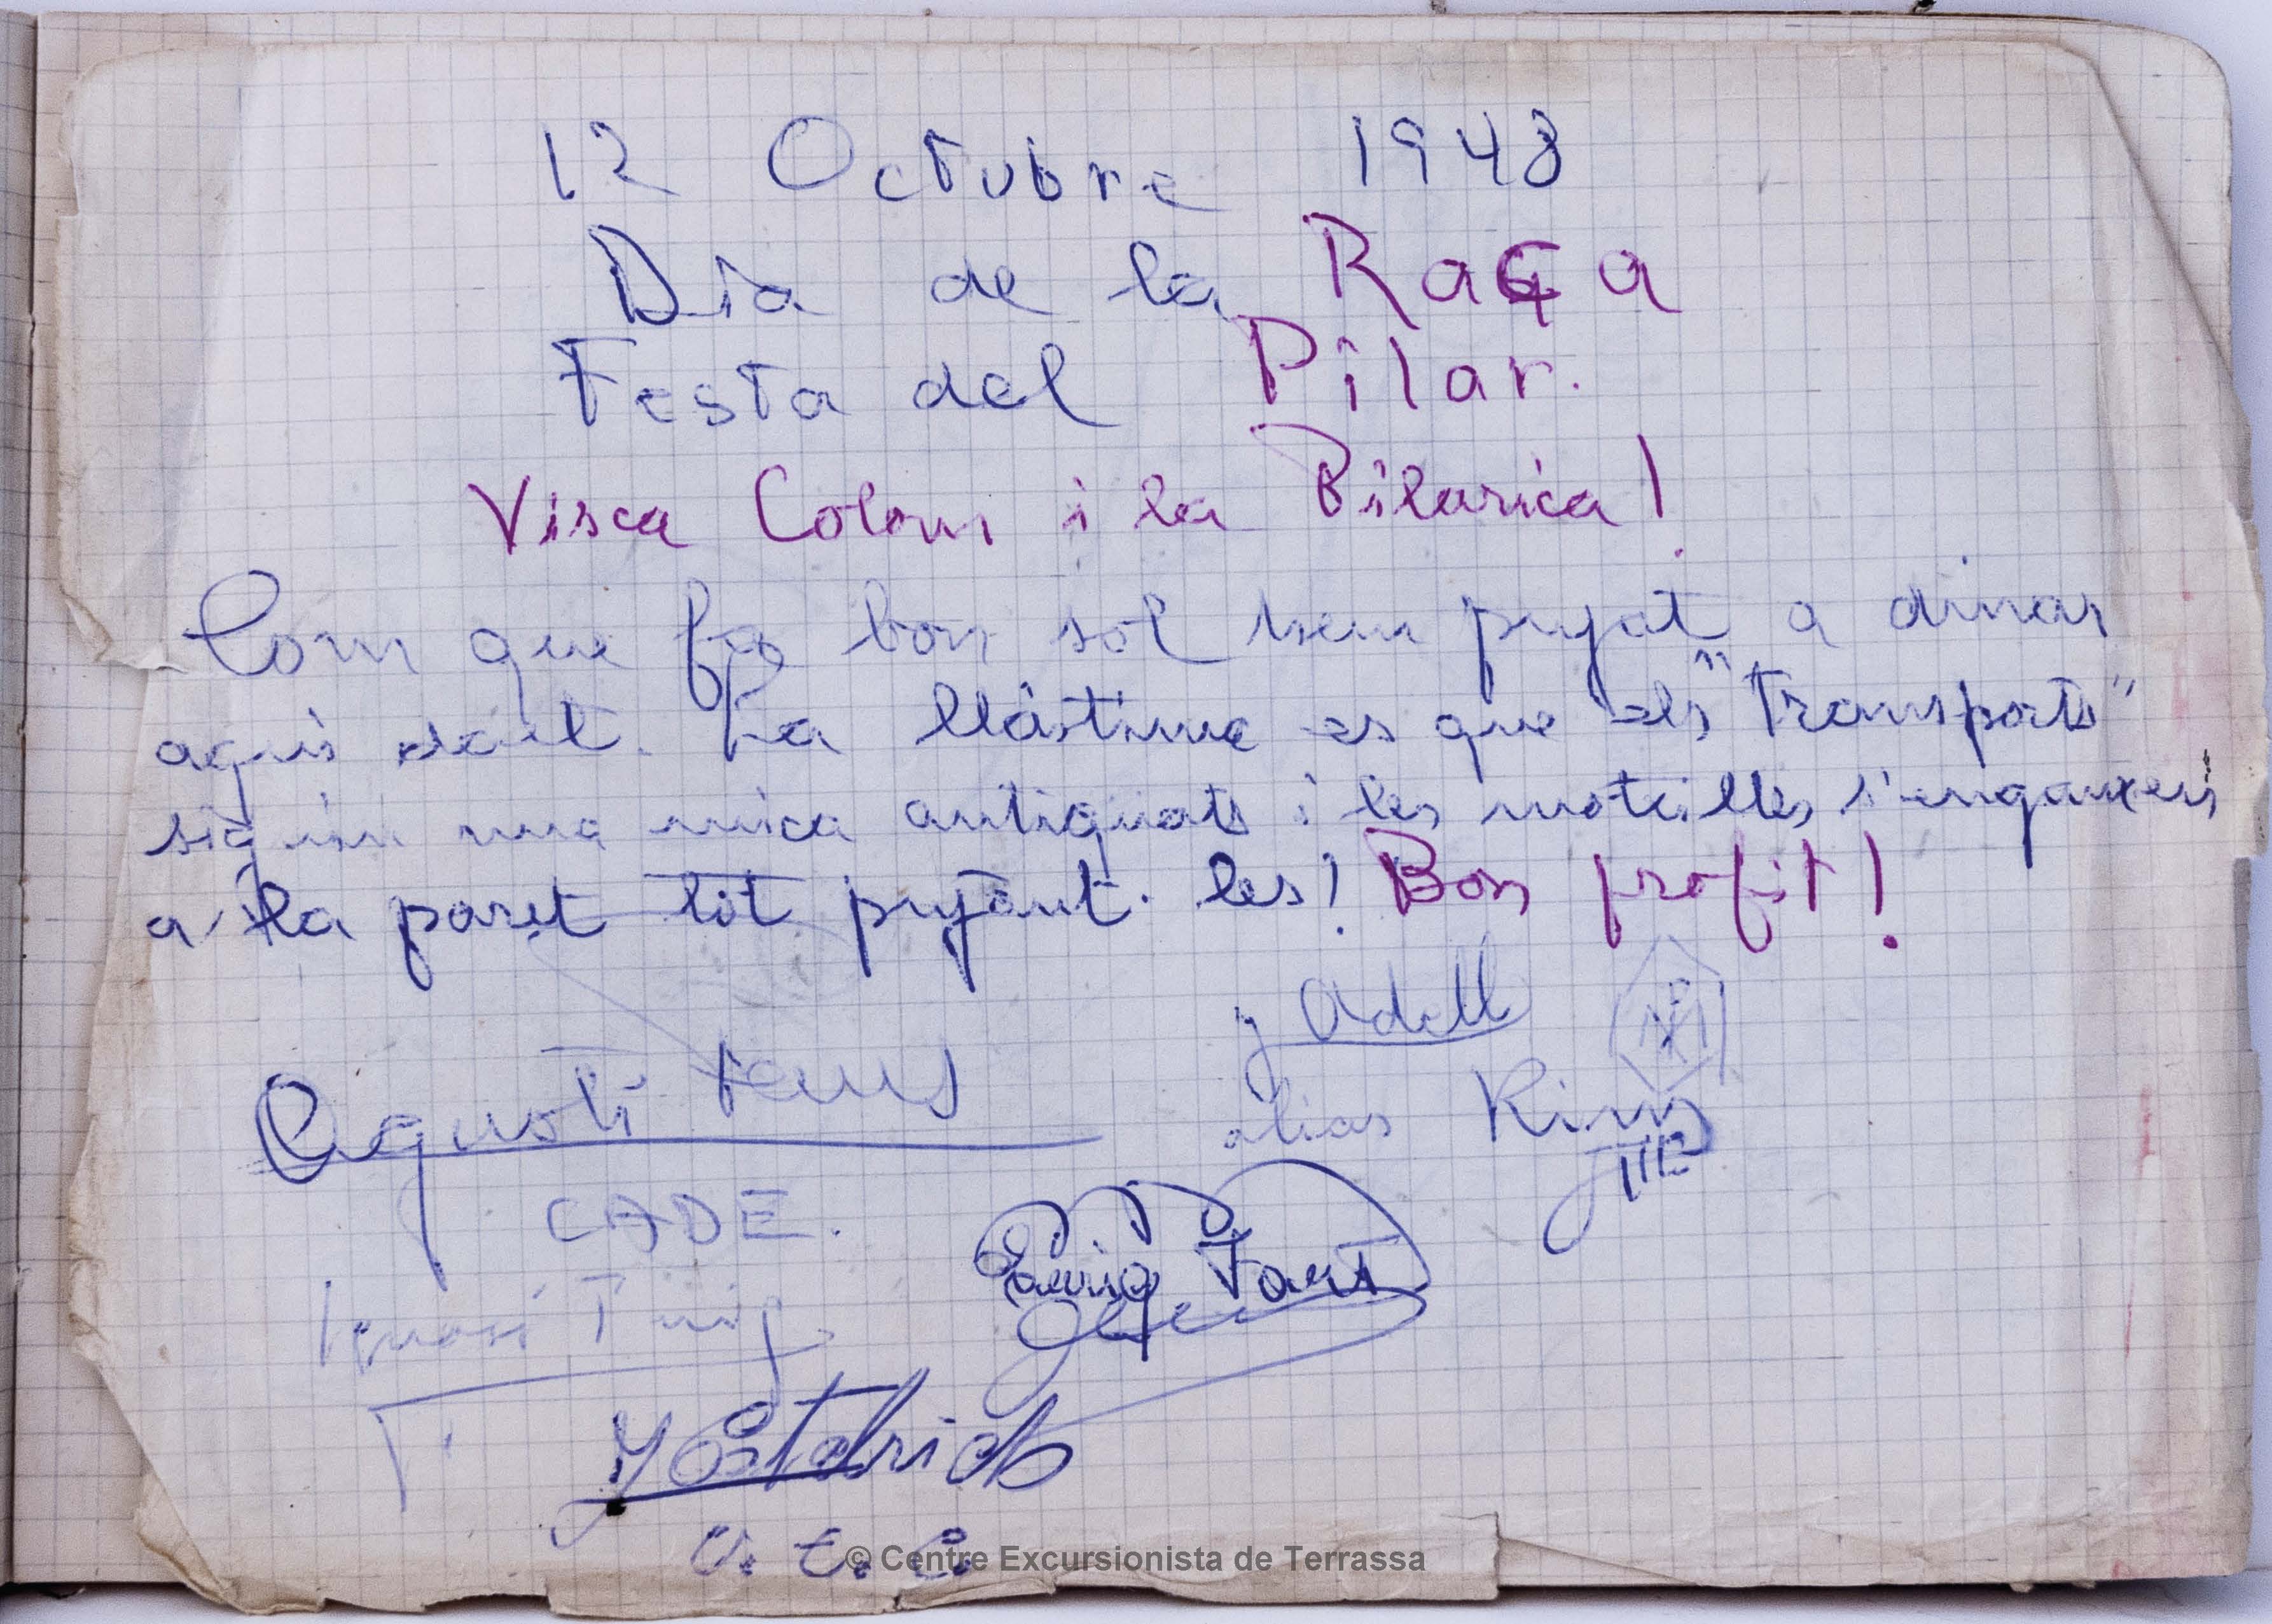 12 Octubre 1948
Dia de la Raça
Festa del Pilar.
Visca Colom i la Pilarica!
Com que fa bon sol hem pujat a dinar
aquí dalt. La llástima es que els "Transports"
siguin una mica antiquats i les motxilles s'enganxen
a la paret tot pujant-les! Bon profit!
J Adell
Agustí Faus
alias King
III
CADE.
Puig Fort
Ignasi Puig
J Ostdrich
U. E. C.
© Centre Excursionista de Terrassa